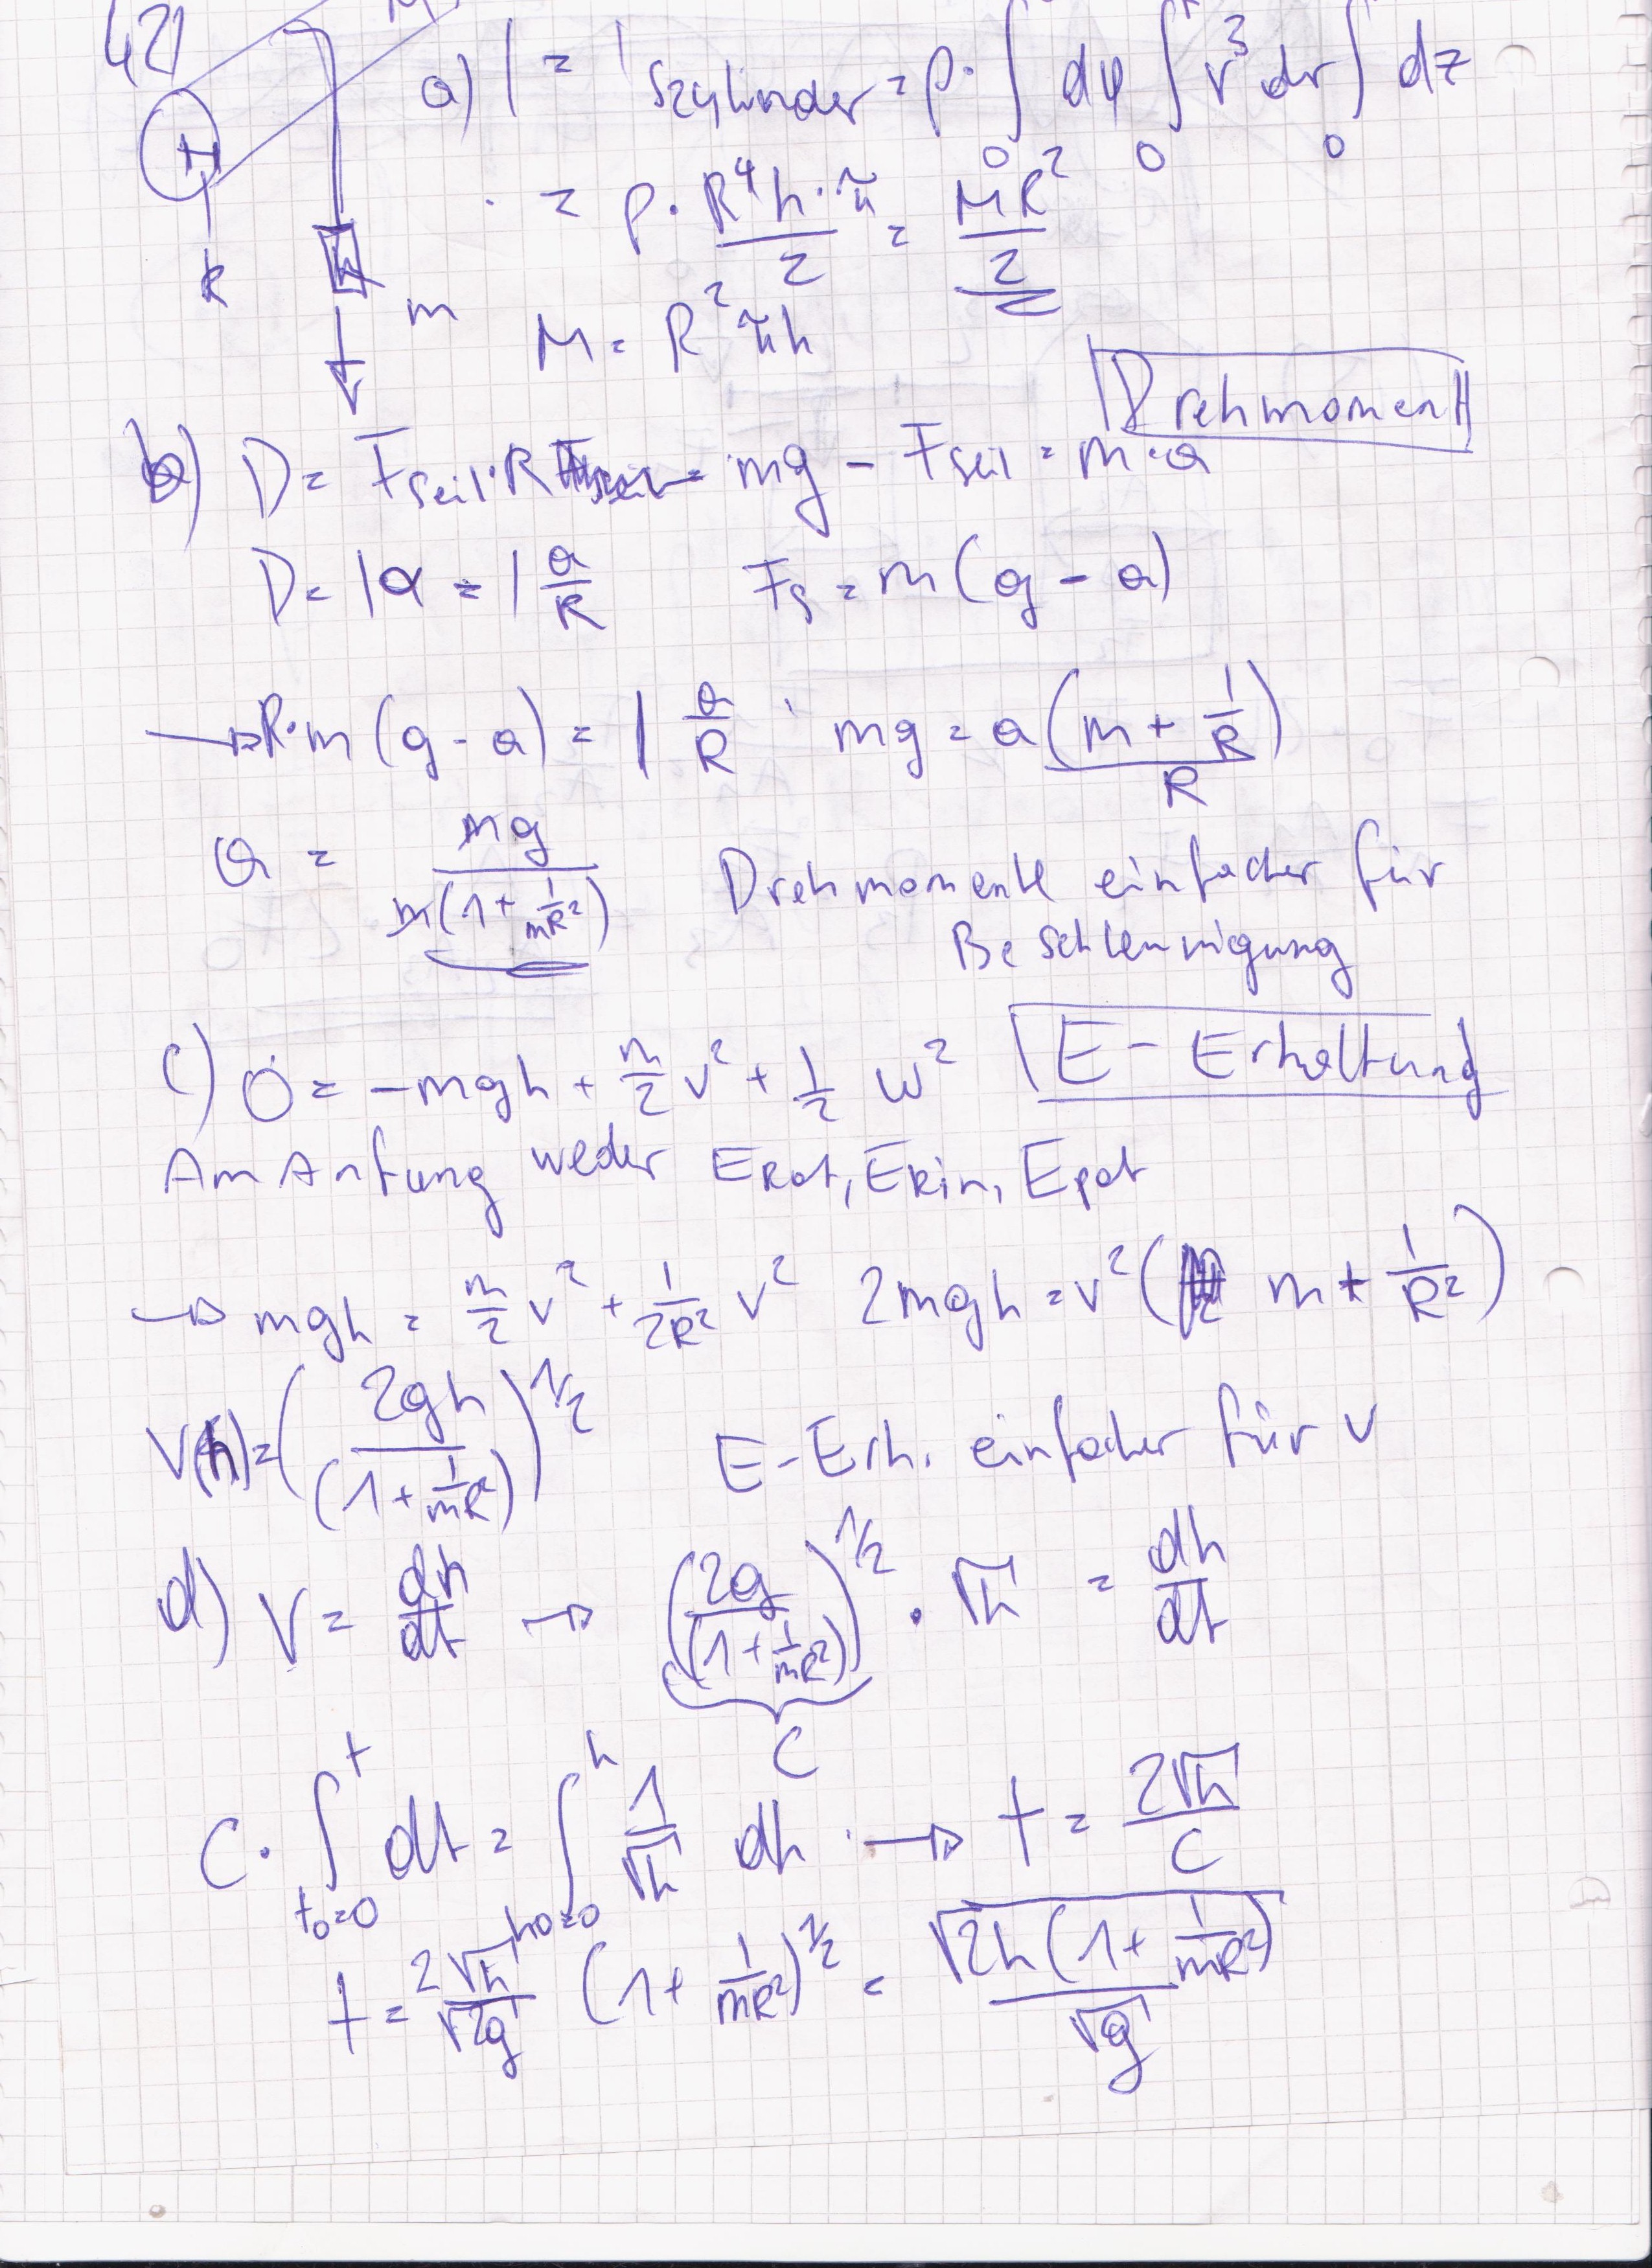 421
M
a) I = I Szylinder = ρ · ∫ dφ ∫ r³ dr ∫ dz
0 0 0
= ρ · R⁴h·π / 2 = MR² / 2
R
m
M = R²πh
Drehmoment
b) D = F_Seil · R mg - F_Seil = m·a
D = Iα = I a/R F_S = m(g - a)
→ R·m (g - a) = I a/R mg = a(m + I/R) / R
a = mg / m(1 + I/mR²)
Drehmomente einfacher für
Beschleunigung
c) 0 = -mgh + m/2 v² + I/2 ω² E-Erhaltung
Am Anfang weder ERot, EKin, Epot
→ mgh = m/2 v² + I/2R² v² 2mgh = v² (m + I/R²)
V(h) = (2gh / (1 + I/mR²))^1/2 E-Erh. einfacher für v
d) V = dh/dt → (2g / (1 + I/mR²))^1/2 · √h = dh/dt
C
C · ∫_{t₀=0}^{t} dt = ∫_{h0=0}^{h} 1/√h dh → t = 2√h / C
t = 2√h/√2g (1 + I/mR²)^1/2 = √2h(1 + I/mR²) / √g